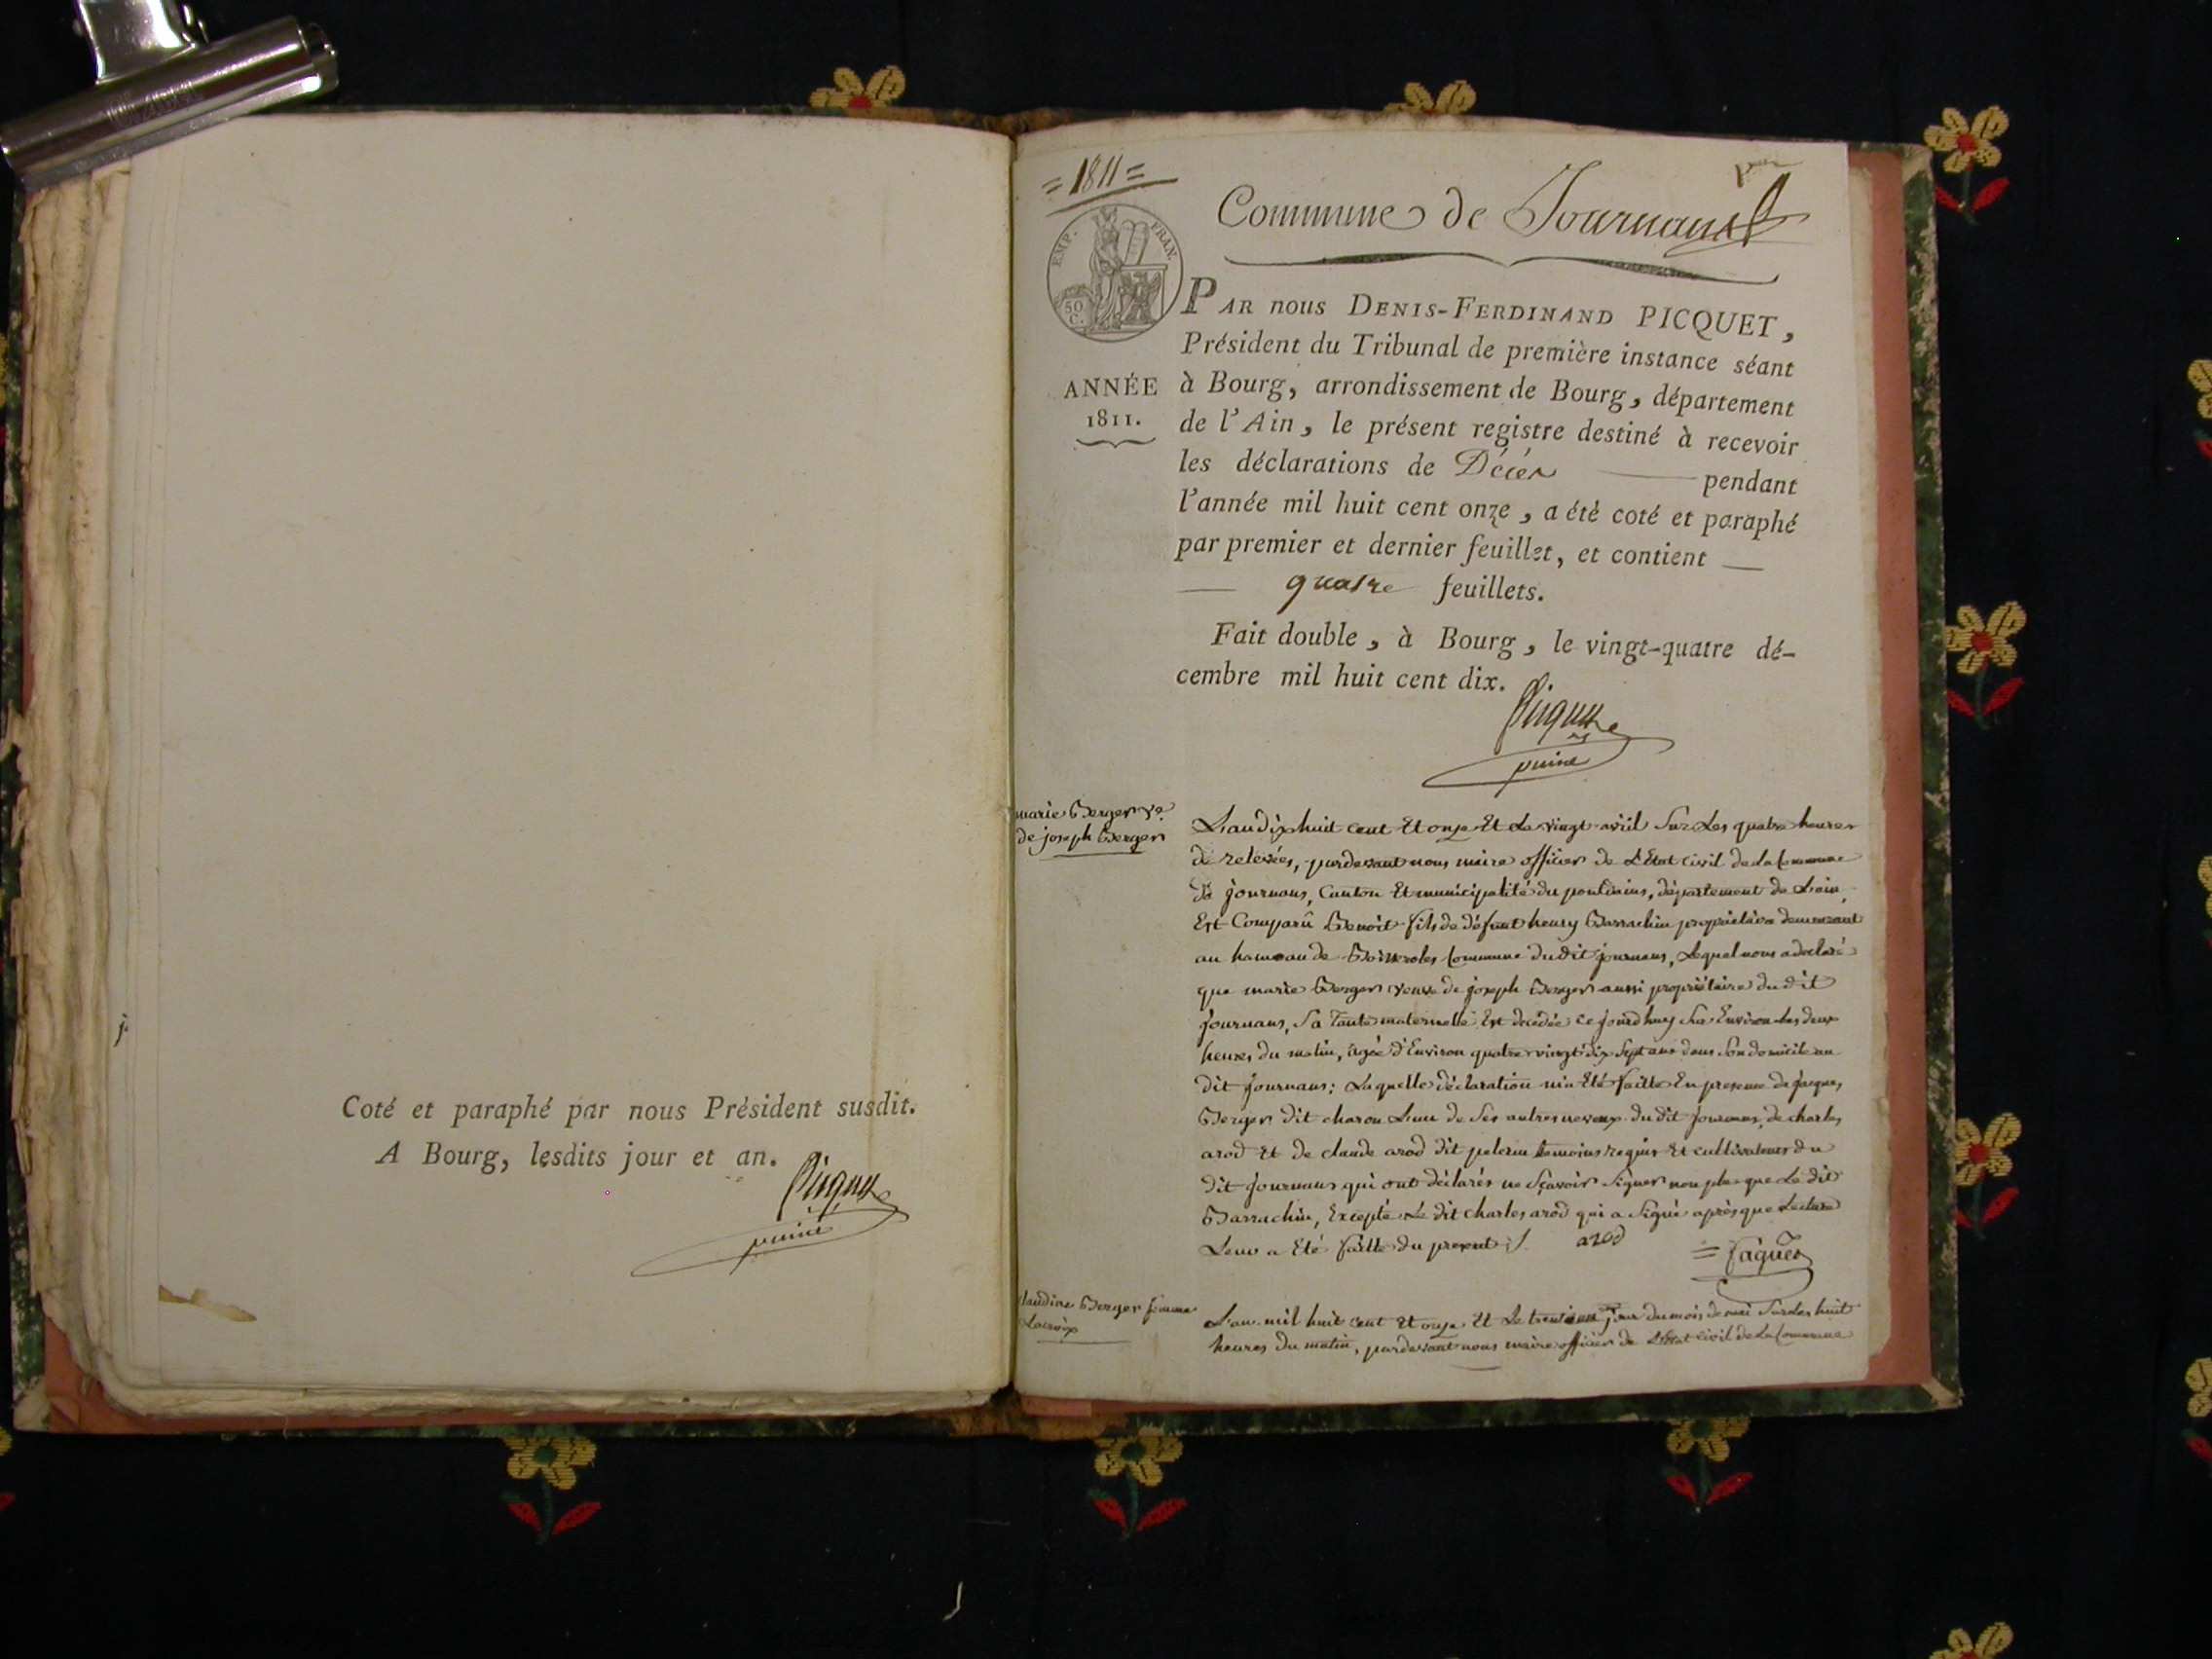 Coté et paraphé par nous Président susdit.
A Bourg, lesdits jour et an.
Picquet
= 1811 =
Commune de Journans
EMP. FRAN.
50 C.
ANNÉE
1811.
PAR nous DENIS-FERDINAND PICQUET,
Président du Tribunal de première instance séant
à Bourg, arrondissement de Bourg, département
de l'Ain, le présent registre destiné à recevoir
les déclarations de Décès pendant
l'année mil huit cent onze, a été coté et paraphé
par premier et dernier feuillet, et contient
quatre feuillets.
Fait double, à Bourg, le vingt-quatre dé-
cembre mil huit cent dix.
Picquet
marie Berger ve
de joseph Berger
L'an dix huit cent Et onze Et Le vingt avril Sur Les quatre heures
de relevées, pardevant nous maire officier de L'Etat civil de La Commune
de journans, Canton Et municipalité du pontdains, département de L'ain,
Est Comparû Benoit fils de défunt henry Barrachin propriétaire demeurant
au hameau de Commune du dit journans, Lequel nous a déclaré
que marie Berger veuve de joseph Berger aussi propriétaire du dit
journans, Sa Tante maternelle Est décédée ce jourdhuy Sur Environ Les deux
heures du matin, âgée d'Environ quatre vingt dix Sept ans dans Son domicile au
dit journans; Laquelle déclaration m'a Eté faitte En presence de jacques
Berger dit charon L'un de Ses autres neveux du dit journans, de charles
arod Et de claude arod dit pelerin temoins requis Et cultivateurs du
dit journans qui ont déclarés ne Sçavoir Signer non plus que Le dit
Barrachin, Excepté Le dit charles arod qui a Signé après que Lecture
Leur a Eté faitte du present /. arod
= faguet
Claudine Berger femme
Lacroix
L'an mil huit cent Et onze Et Le troisieme jour du mois de mai Sur Les huit
heures du matin, pardevant nous maire officier de L'Etat civil de La Commune